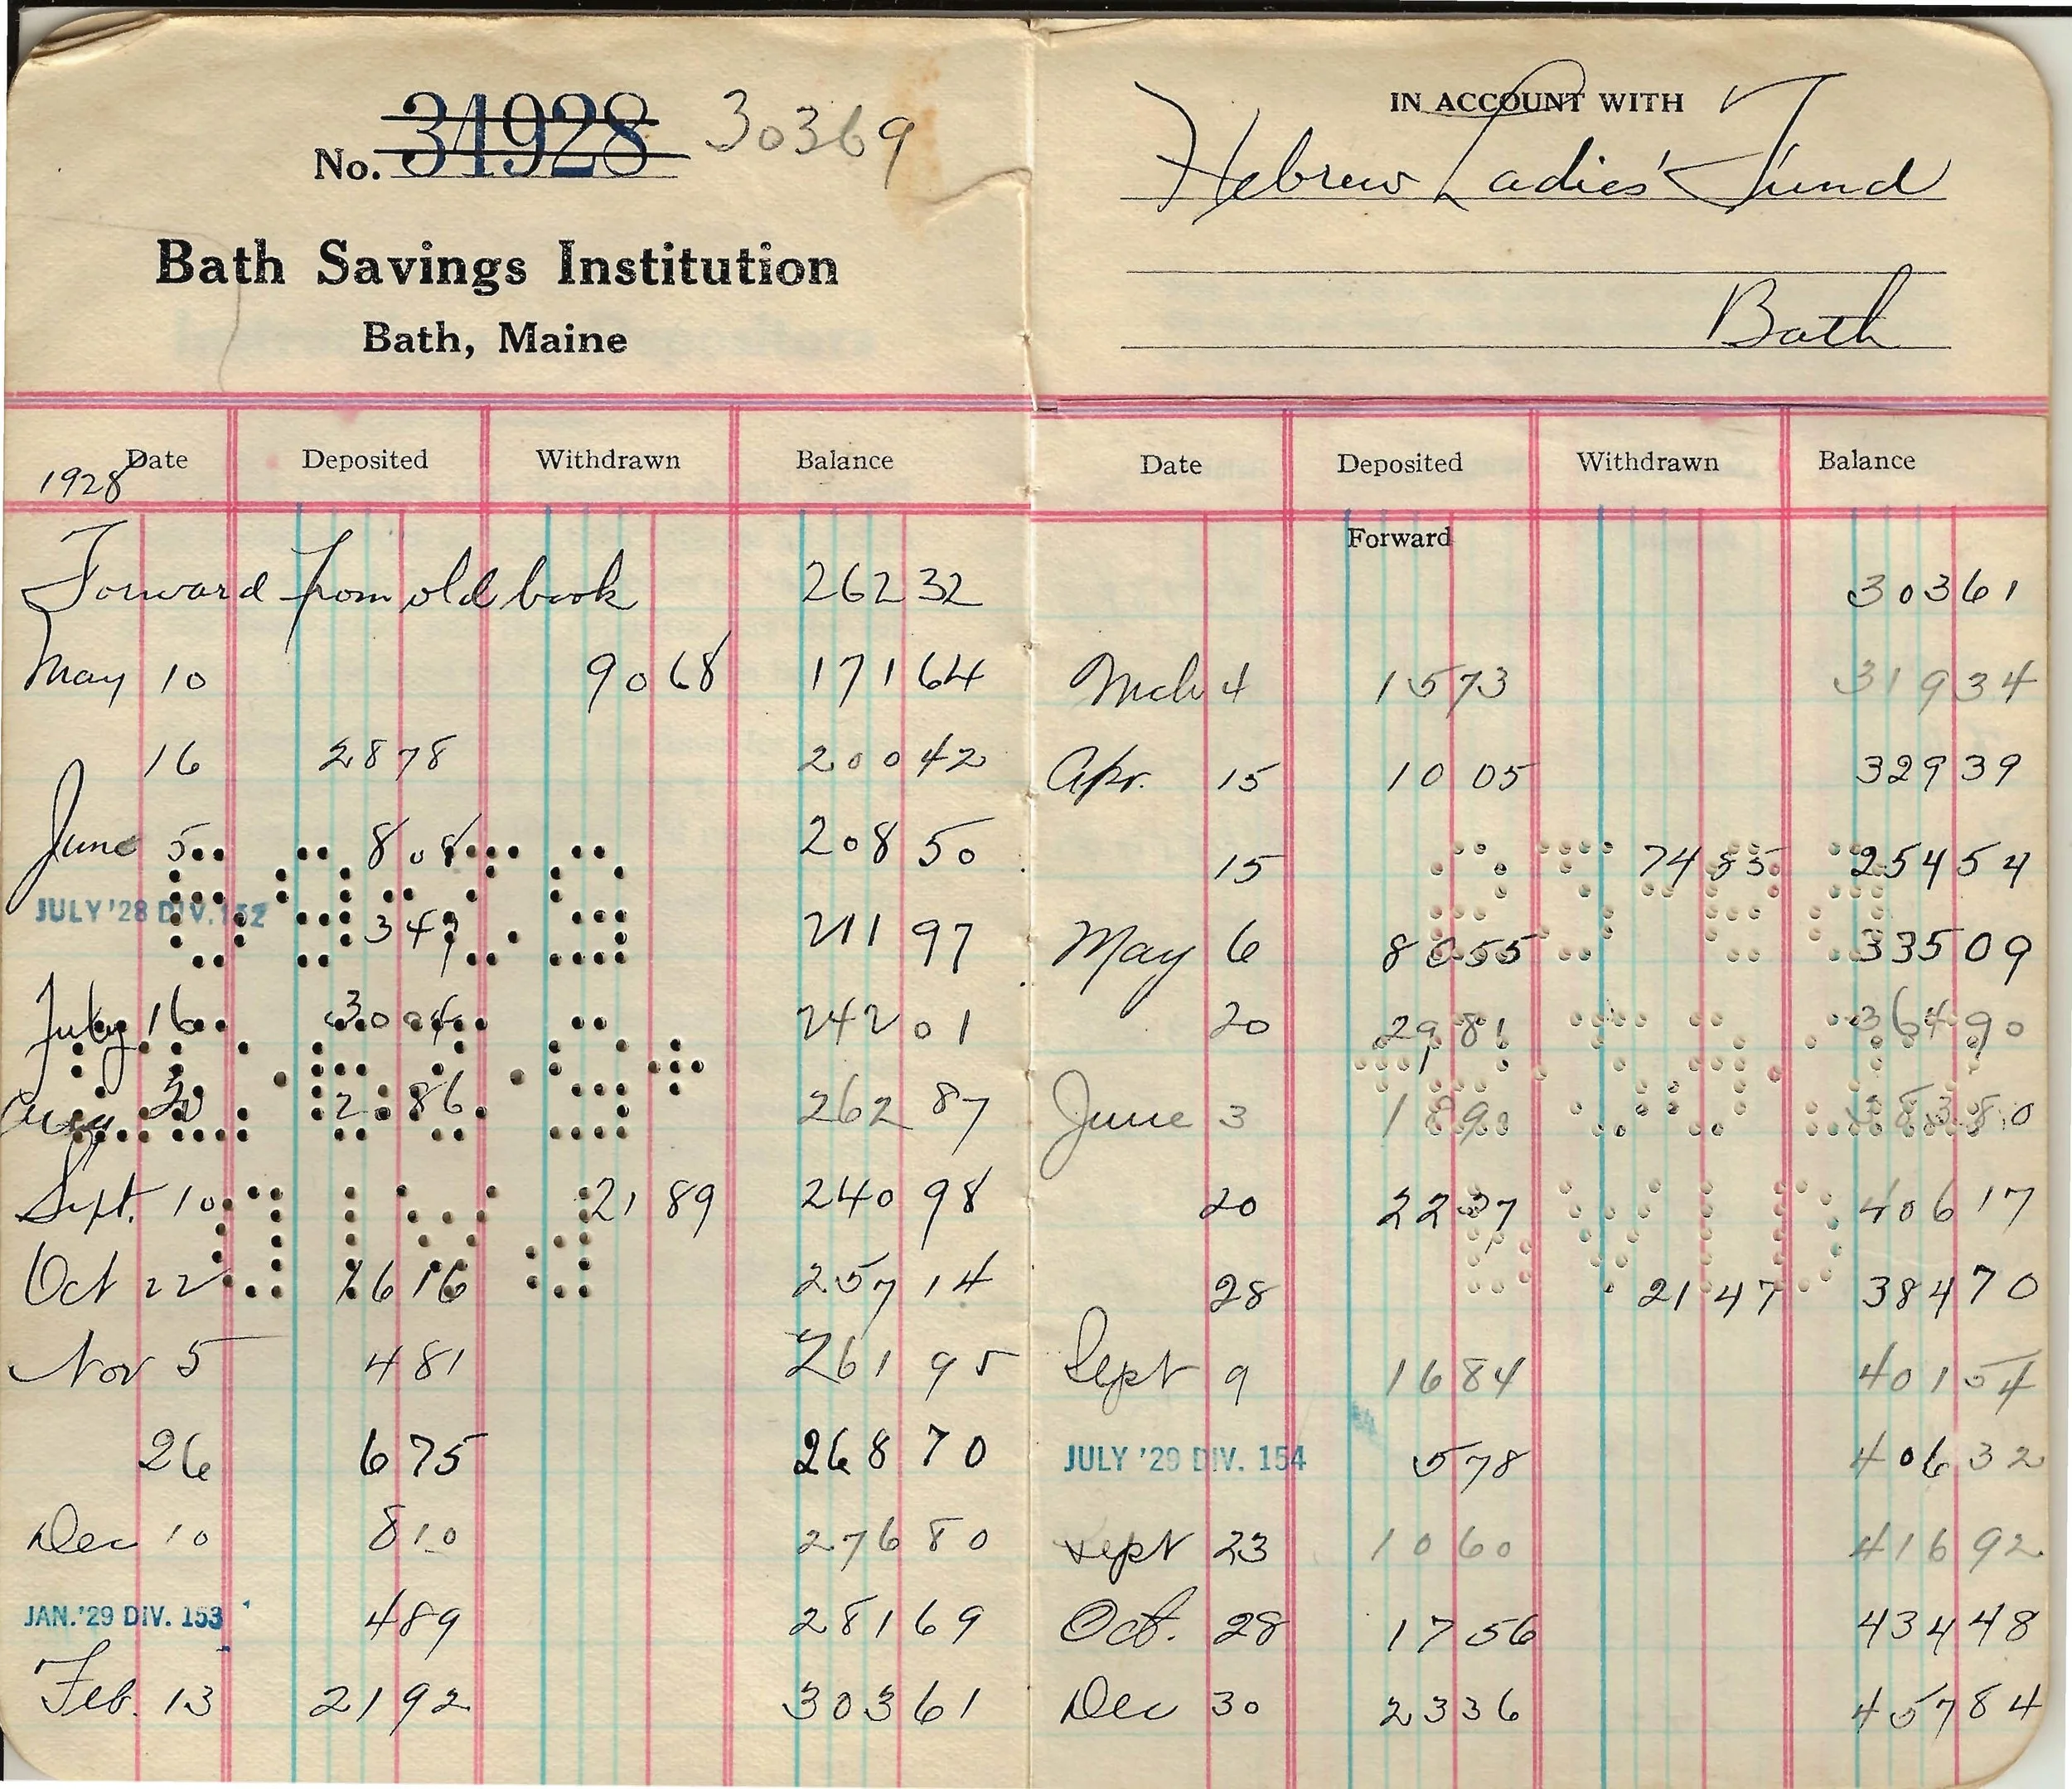 No. 34928 30369
Bath Savings Institution
Bath, Maine
Date Deposited Withdrawn Balance
1928
Forward from old book 262 32
May 10 90 68 171 64
16 28 78 200 42
June 5 8 08 208 50
JULY '28 DIV. 152 3 47 211 97
July 16 30 04 242 01
Aug 20 20 86 262 87
Sept. 10 21 89 240 98
Oct 22 16 16 257 14
Nov 5 4 81 261 95
26 6 75 268 70
Dec 10 8 10 276 80
JAN. '29 DIV. 153 4 89 281 69
Feb. 13 21 92 303 61
IN ACCOUNT WITH
Hebrew Ladies' Fund
Bath
Date Deposited Withdrawn Balance
Forward
303 61
Mch 4 15 73 319 34
Apr. 15 10 05 329 39
15 74 85 254 54
May 6 80 55 335 09
20 29 81 364 90
June 3 18 90 383 80
20 22 37 406 17
28 21 47 384 70
Sept 9 16 84 401 54
JULY '29 DIV. 154 5 78 406 32
Sept 23 10 60 416 92
Oct. 28 17 56 434 48
Dec 30 23 36 457 84